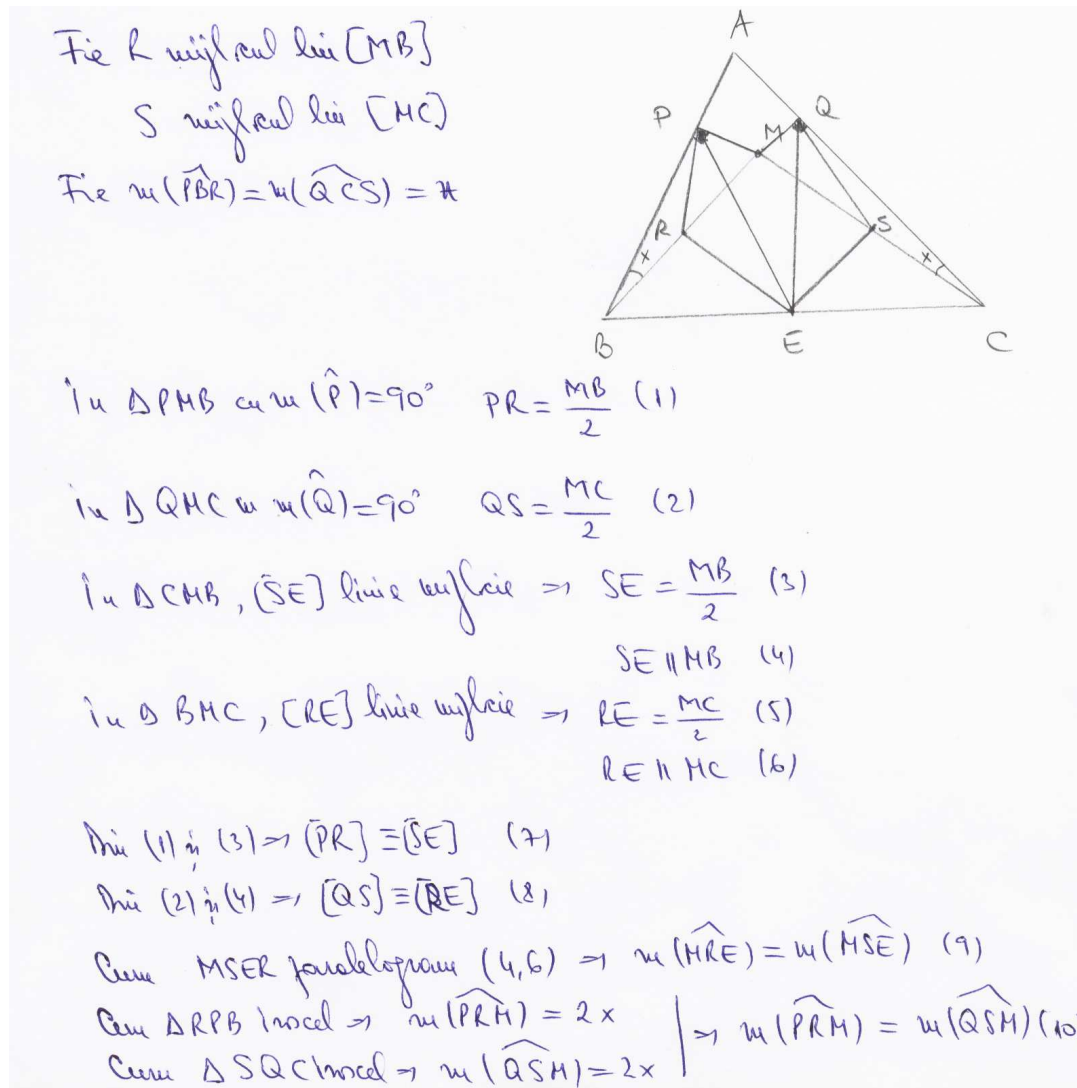 Fie R mijlocul lui [MB]
S mijlocul lui [MC]
Fie m(PB̂R) = m(QĈS) = x
A
P
M
Q
R
S
x
x
B
E
C
În ΔPMB cu m(P̂)=90° PR = MB/2 (1)
în Δ QMC cu m(Q̂)=90° QS = MC/2 (2)
În ΔCMB, [SE] linie mijlocie ⇒ SE = MB/2 (3)
SE ∥ MB (4)
în Δ BMC, [RE] linie mijlocie ⇒ RE = MC/2 (5)
RE ∥ MC (6)
Din (1) și (3) ⇒ [PR] ≡ [SE] (7)
Din (2) și (4) ⇒ [QS] ≡ [RE] (8)
Cum MSER paralelogram (4,6) ⇒ m(MR̂E) = m(MŜE) (9)
Cum ΔRPB isoscel ⇒ m(PR̂M) = 2x
Cum Δ SQC isoscel ⇒ m(QŜM) = 2x | ⇒ m(PR̂M) = m(QŜM) (10